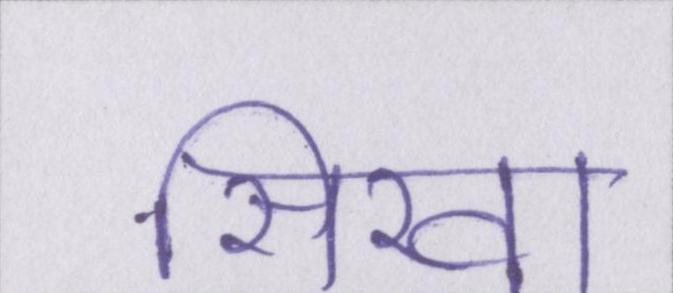 सिखा